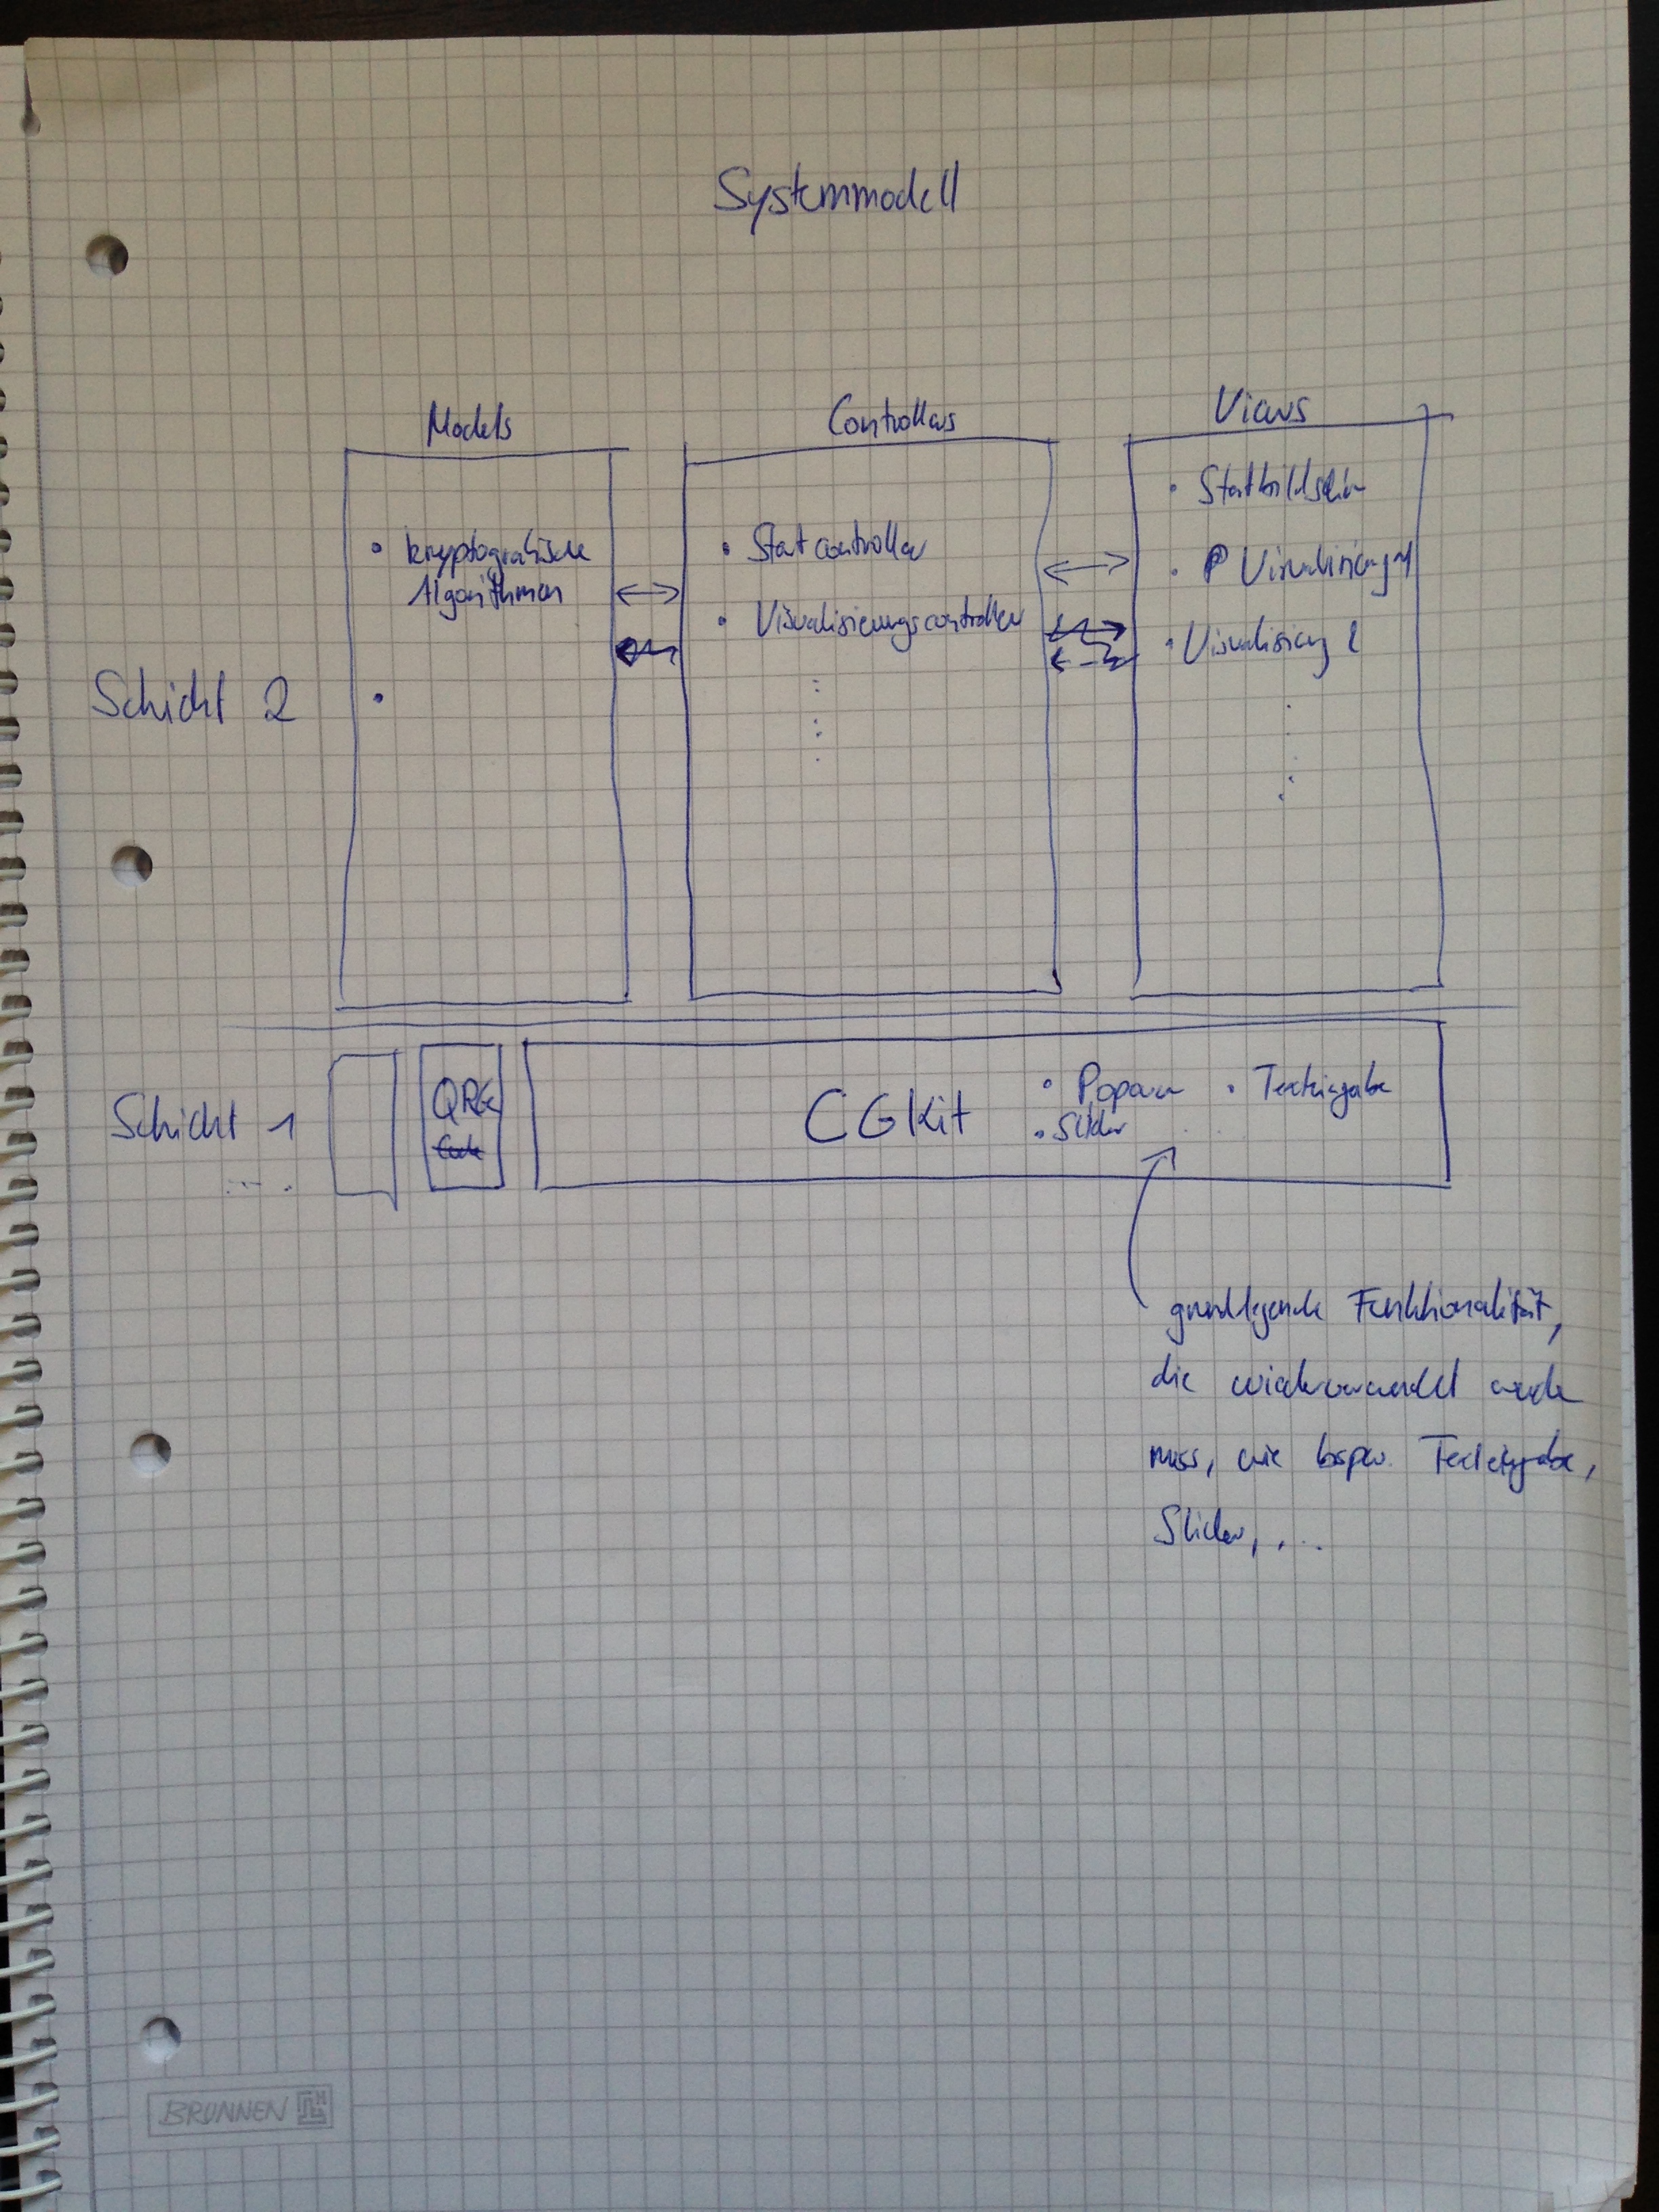 Systemmodell
Models
Controllers
Views
• kryptografische
Algorithmen
•
• Startcontroller
• Visualisierungscontroller
• Startbildschirm
• Visualisierung 1
• Visualisierung 2
Schicht 2
Schicht 1
....
CGKit
• Slider
• Texteingabe
grundlegende Funktionalität,
die wiederverwendet werden
muss, wie bspw. Texteingabe,
Slider, ...
BRUNNEN